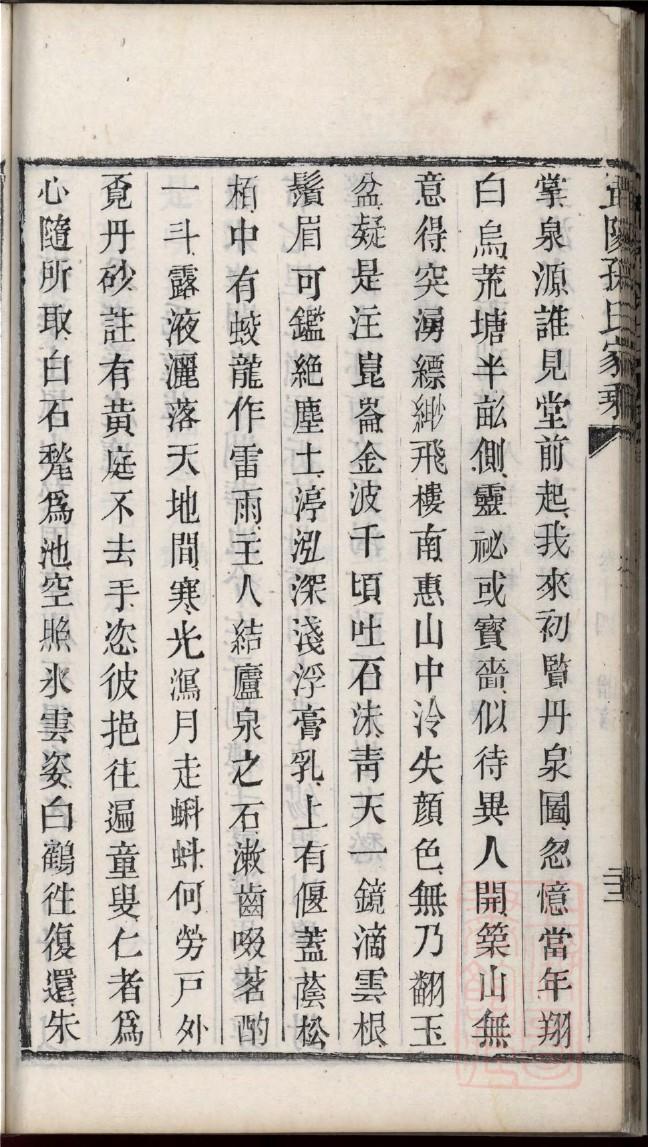 掌泉源誰見堂前起我來初覧丹泉圖忽憶當年翔
白烏荒塘半畝側靈祕或寳嗇似待異人開築山無
意得突湧縹緲飛樓南惠山中泠失顔色無乃翻玉
盆疑是注崑崙金波千頃吐石沫靑天一鏡滴雲根
鬚眉可鑑絶塵土渟泓深淺浮膏乳上有偃蓋蔭松
栢中有蛟龍作雷雨主人結廬泉之石漱齒啜茗酌
一斗露液灑落天地間寒光瀉月走蝌蚪何勞戸外
覔丹砂註有黄庭不去手恣彼挹往遍童叟仁者爲
心隨所取白石甃爲池空照氷雲姿白鶴徃復還朱
陽孫氏家乗
二十二